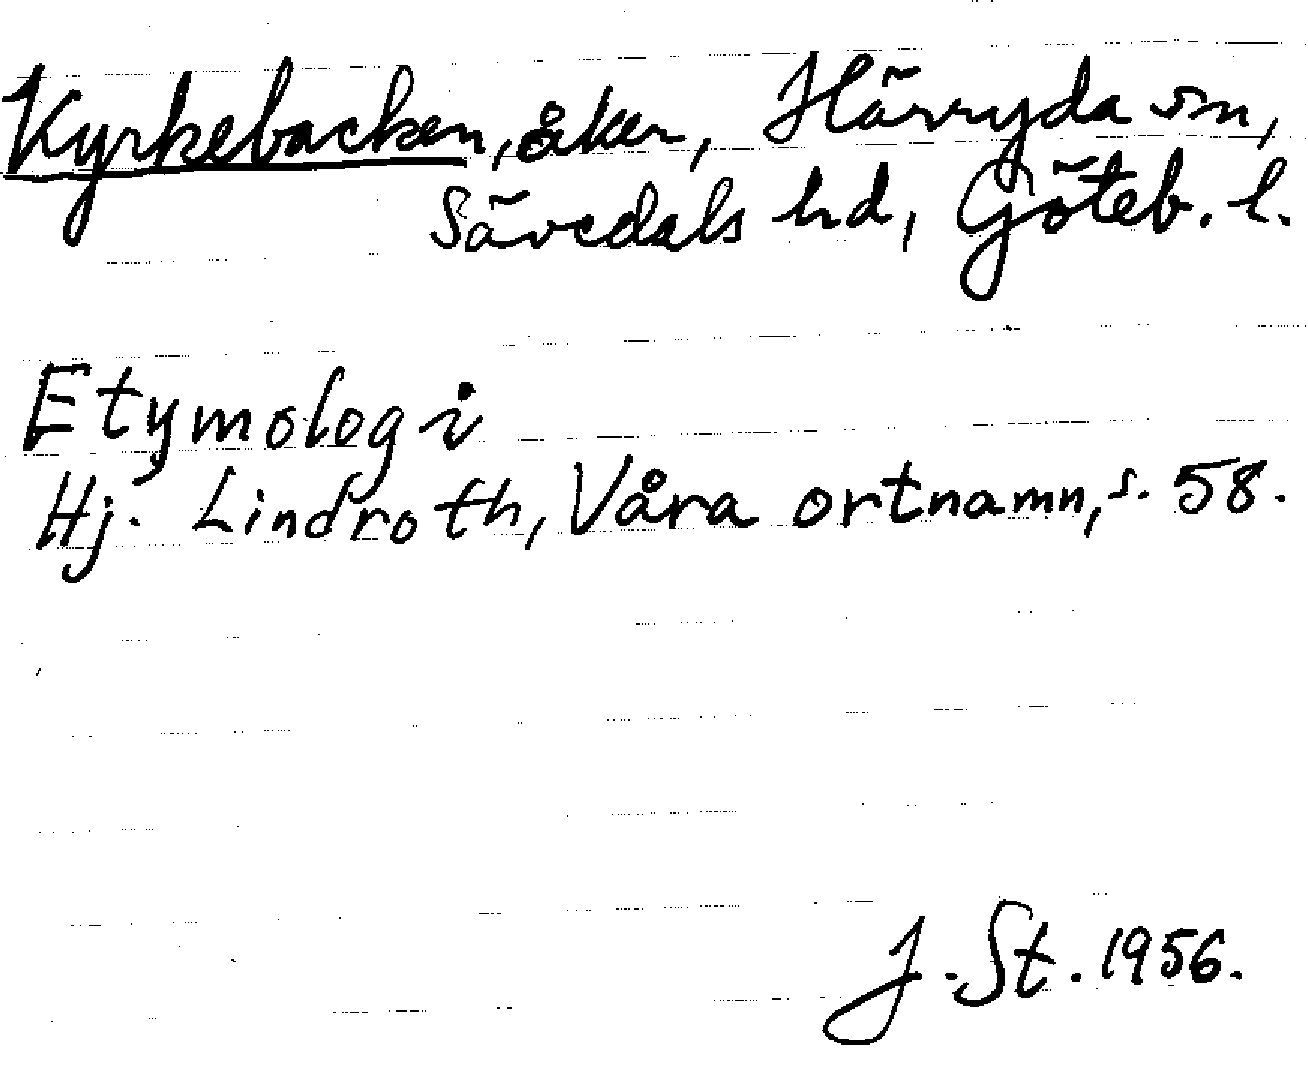 Kyrkebacken, åker, Härryda sn,
Sävedals hd, Göteb. l.
Etymologi
Hj. Lindroth, Våra ortnamn, s. 58.
J. St. 1956.